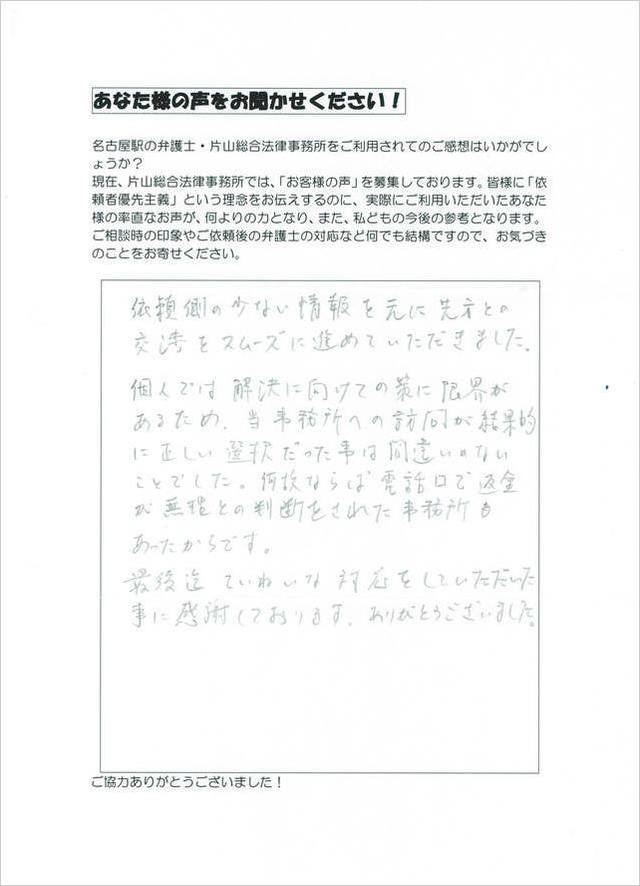 あなた様の声をお聞かせください！
名古屋駅の弁護士・片山総合法律事務所をご利用されてのご感想はいかがでし
ょうか？
現在、片山総合法律事務所では、「お客様の声」を募集しております。皆様に「依
頼者優先主義」という理念をお伝えするのに、実際にご利用いただいたあなた
様の率直なお声が、何よりの力となり、また、私どもの今後の参考となります。
ご相談時の印象やご依頼後の弁護士の対応など何でも結構ですので、お気づき
のことをお寄せください。
依頼側の少ない情報を元に先方との
交渉をスムーズに進めていただきました。
個人では解決に向けての策に限界が
あるため、当事務所への訪問が結果的
に正しい選択だった事は間違いのない
ことでした。何故ならば電話口で返金
が無理との判断をされた事務所も
あったからです。
最後迄ていねいな対応をしていただいた
事に感謝しております。ありがとうございました。
ご協力ありがとうございました！